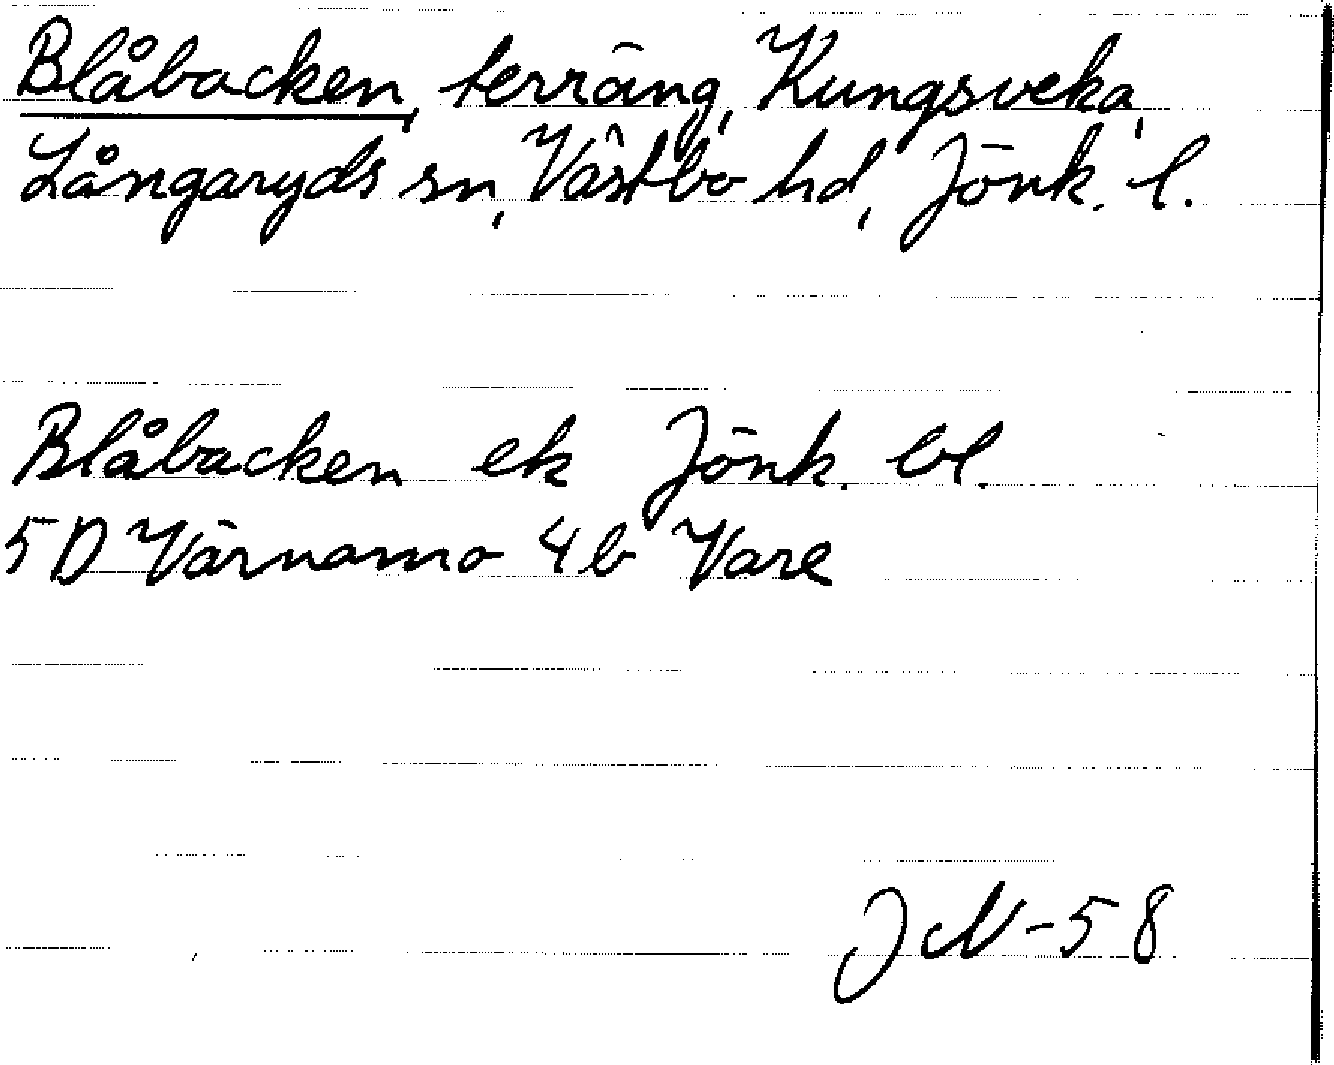 Blåbacken, terräng, Kungsveka,
Långaryds sn, Västbo hd, Jönk. l.
Blåbacken ek Jönk. bl.
5D Värnamo 4b Vare
JN-58